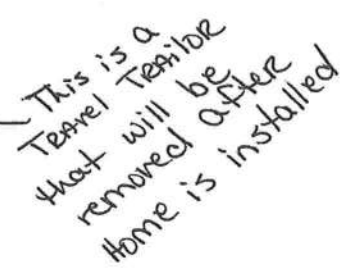 This is a
Travel Trailor
that will be
removed after
Home is installed